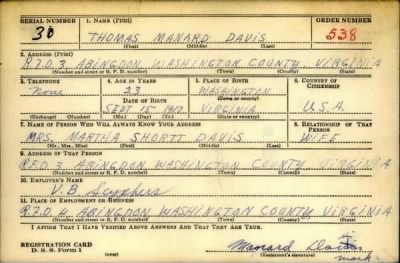 SERIAL NUMBER 1. NAME (Print) ORDER NUMBER
30 THOMAS MANARD DAVIS 538
(First) (Middle) (Last)
2. ADDRESS (Print)
R.F.D. 3, ABINGDON WASHINGTON COUNTY, VIRGINIA
(Number and street or R. F. D. number) (Town) (County) (State)
3. TELEPHONE 4. AGE IN YEARS 5. PLACE OF BIRTH 6. COUNTRY OF CITIZENSHIP
None 23 WASHINGTON
(Town or county)
DATE OF BIRTH
SEPT 15 1917 VIRGINIA U.S.A.
(Exchange) (Number) (Mo.) (Day) (Yr.) (State or country)
7. NAME OF PERSON WHO WILL ALWAYS KNOW YOUR ADDRESS 8. RELATIONSHIP OF THAT PERSON
MRS. MARTHA SHORTT DAVIS WIFE
(Mr., Mrs., Miss) (First) (Middle) (Last)
9. ADDRESS OF THAT PERSON
R.F.D. 3 ABINGDON WASHINGTON COUNTY, VIRGINIA
(Number and street or R. F. D. number) (Town) (County) (State)
10. EMPLOYER'S NAME
V. B.
11. PLACE OF EMPLOYMENT OR BUSINESS
R.F.D. 4 ABINGDON WASHINGTON COUNTY, VIRGINIA
(Number and street or R. F. D. number) (Town) (County) (State)
I AFFIRM THAT I HAVE VERIFIED ABOVE ANSWERS AND THAT THEY ARE TRUE.
REGISTRATION CARD
D. S. S. Form 1
Manard Davis
(Registrant's signature) mark